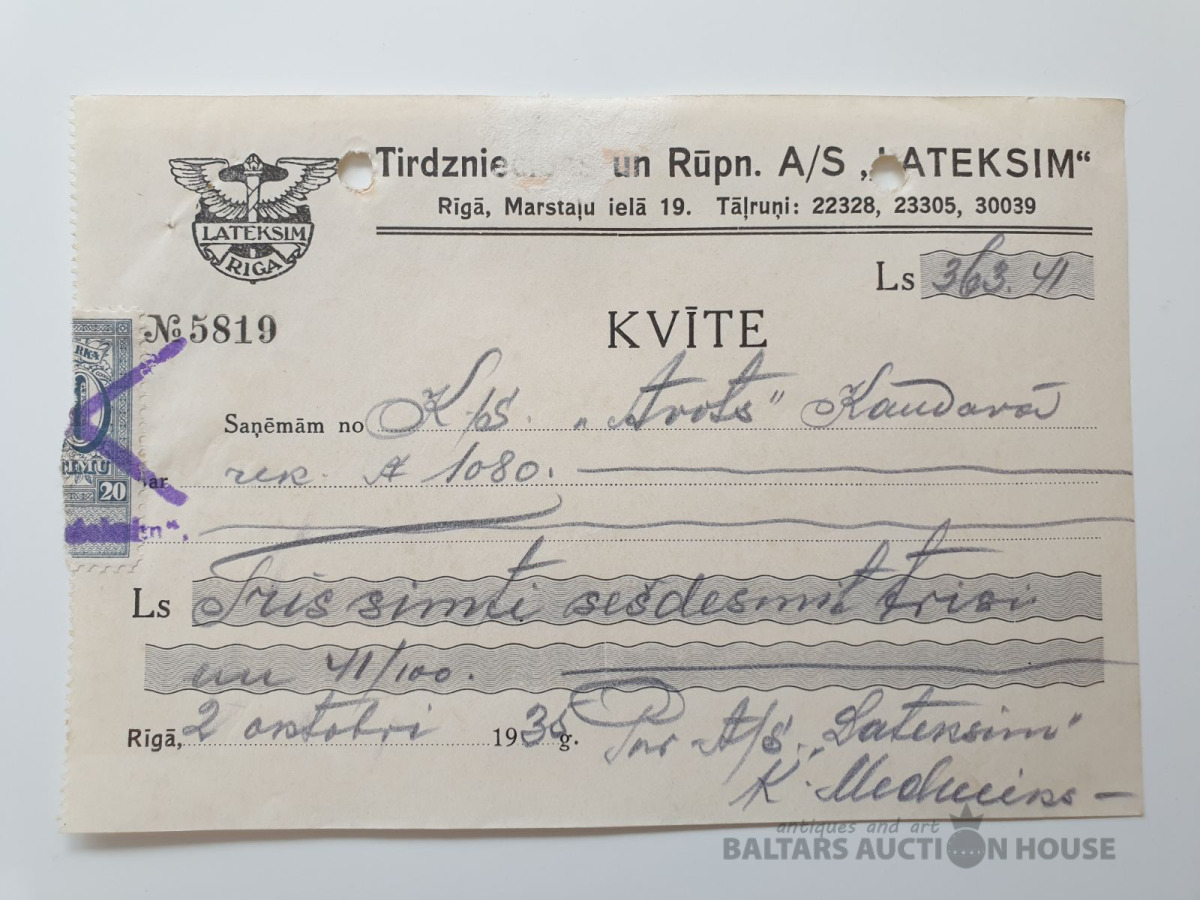 Tirdznie un Rūpn. A/S „LATEKSIM“
Rīgā, Marstaļu ielā 19. Tāļruņi: 22328, 23305, 30039
LATEKSIM
RIGA
Ls 363.41
№ 5819
KVĪTE
RKA
Saņēmām no K/s. „Avots“ Kandavā
par rek. A 1080.
TIMU
20
Ls Trīs simti sešdesmit trīsi
un 41/100.
Rīgā, 2 oktobrī 1935 g. Par A/S. „Lateksim“
K. Mednieks
antiques and art
BALTARS AUCTION HOUSE